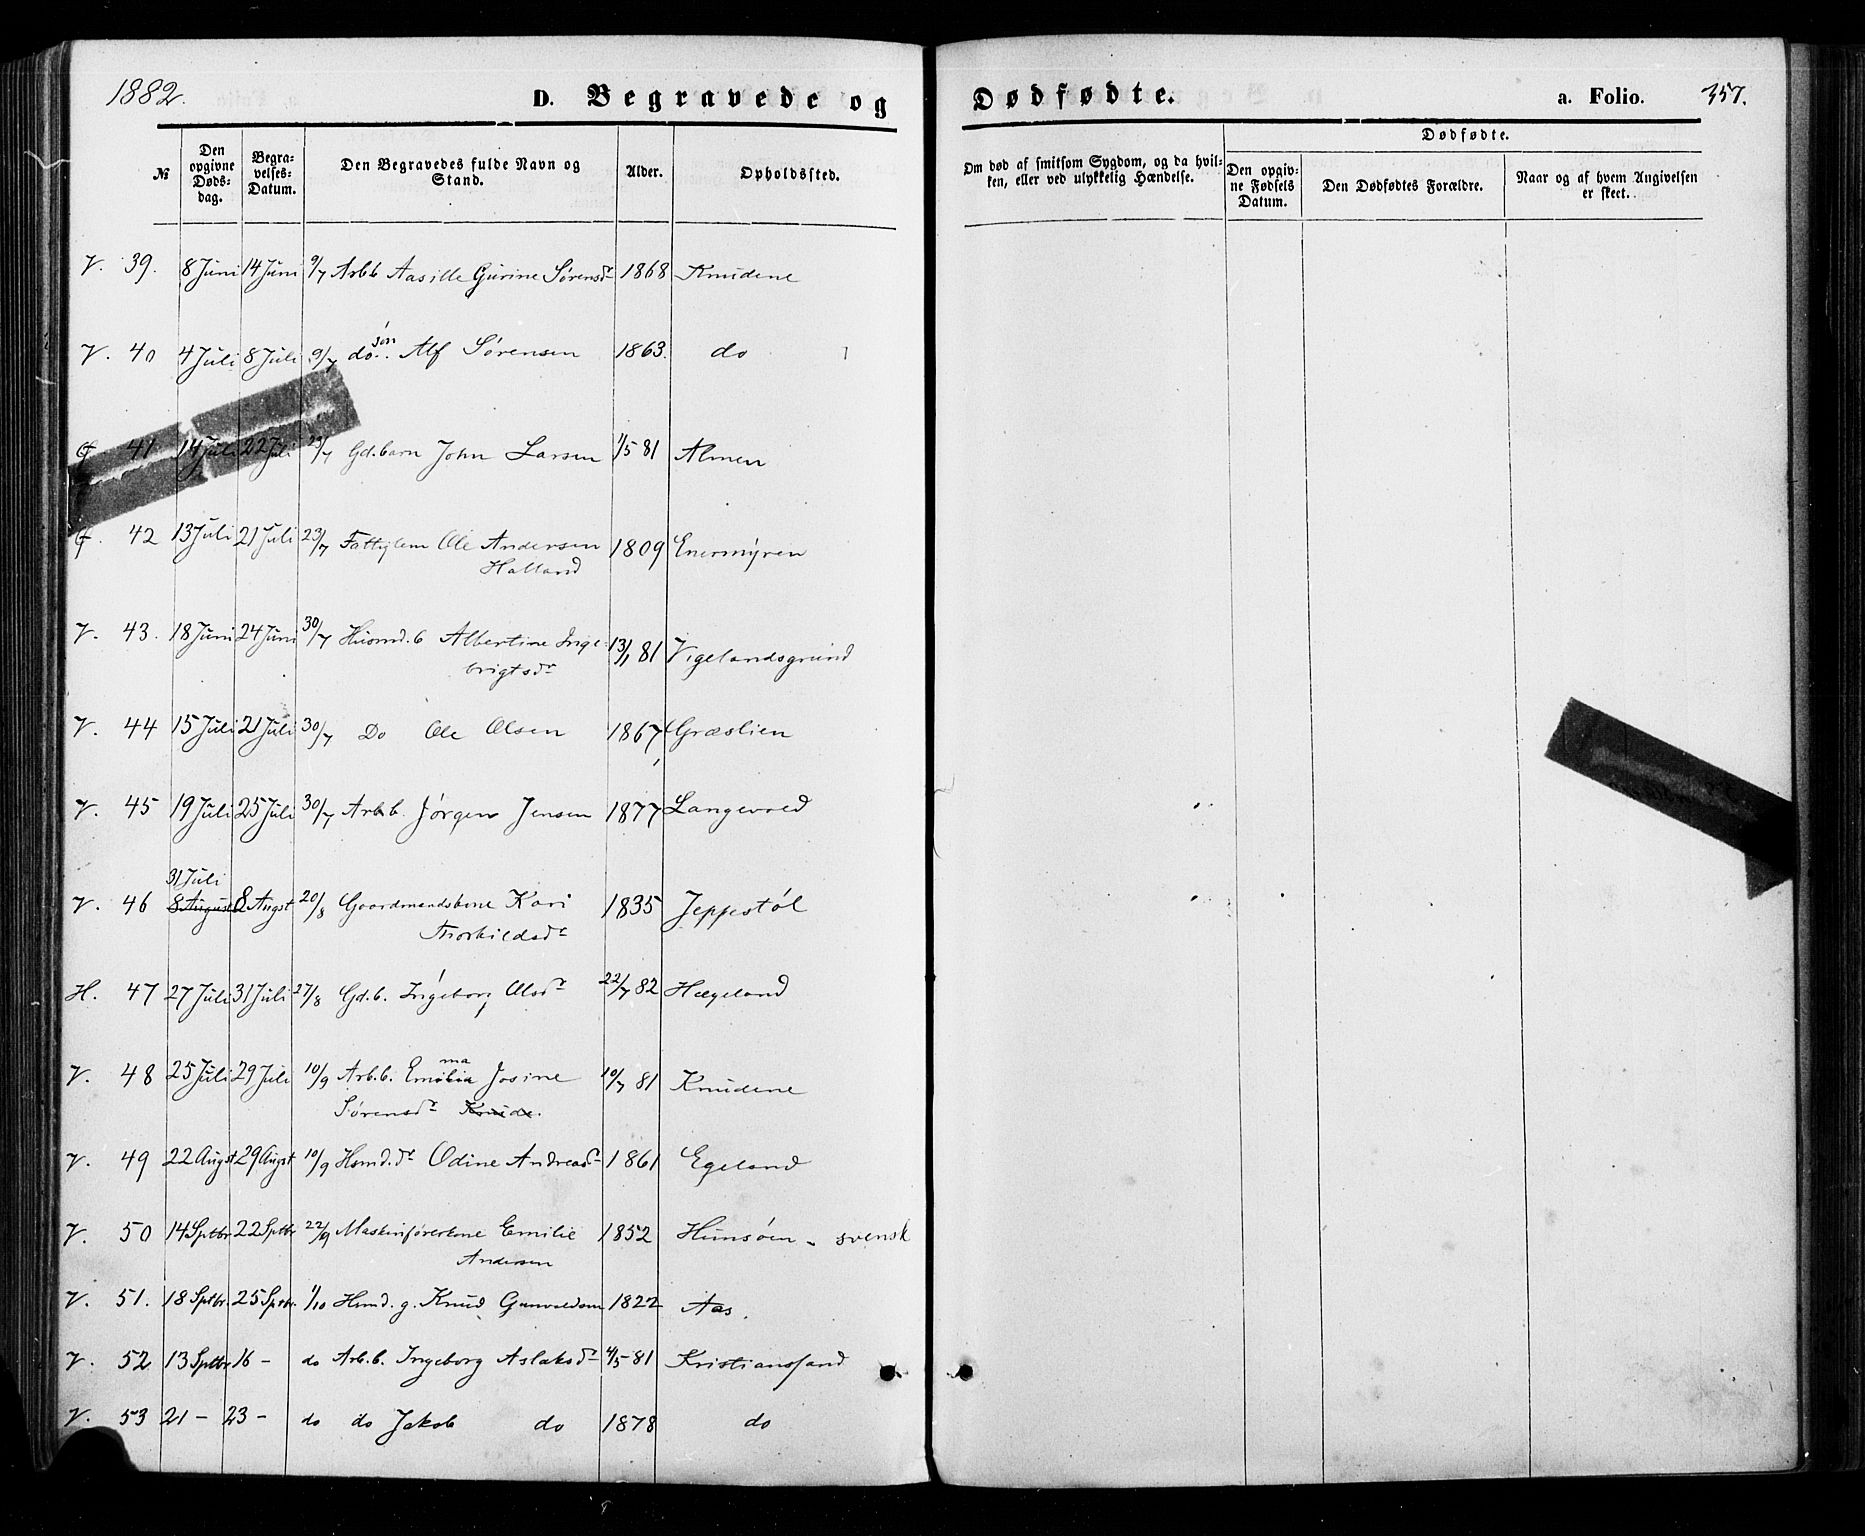 1882.
D. Begravede og Dødfødte. a. Folio. 357.
№ Den opgivne Døds-dag. Begra-velses-Datum. Den Begravedes fulde Navn og Stand. Alder. Opholdssted. Om død af smitsom Sygdom, og da hvil-ken, eller ved ulykkelig Hændelse. Dødfødte. Den opgiv-ne Fødsels Datum. Den Dødfødtes Forældre. Naar og af hvem Angivelsen er skeet.
V. 39. 8 Juni 14 Juni 9/7 Arbb Aasille Gurine Sørensdr 1868 Knudene
V. 40 4 Juli 8 Juli 9/7 do søn Alf Sørensen 1863. do
41 14 Juli 22 Juli 23/7 Gd.barn John Larsen 1/5 81 Almen
42 13 Juli 21 Juli 23/7 Fattiglem Ole Andersen 1809 Enermyren
Halland
V. 43. 18 Juni 24 Juni 30/7 Husmd. b Albertine Inge- 13/1 81 Vigelandsgrund
brigtsdr
V. 44 15 Juli 21 Juli 30/7 Do Ole Olsen 1867 Græslien
V. 45 19 Juli 25 Juli 30/7 Arbb. Jørgen Jensen 1877 Langevold
31 Juli
V. 46 8 August 8 Augst 20/8 Gaardmandskone Kari 1835 Jeppestøl
Thorkildsdr
H. 47 27 Juli 31 Juli 27/8 Gd.b. Ingeborg Olsdr 22/7 82 Hægeland
V. 48 25 Juli 29 Juli 10/9 Arb.b. Emma Josine 10/7 81 Knudene
Sørensdr Knude.
V. 49 22 Augst 29 Augst 10/9 Hsmd.dr Odine Andreasdr 1861 Egeland
V. 50 14 Sptbr 22 Sptbr 22/9 Maskinførerkone Emilie 1852 Hunsøen - svensk
Andersen
V. 51. 18 Sptbr. 25 Sptbr. 1/10 Hsmd. g. Knud Gunvaldsen 1822 Aas.
V. 52 13 Sptbr 16 - do Arb.b. Ingeborg Aslaksdr 4/5 81 Kristianssand
V. 53 21 - 23 - do do Jakob do 1878 do